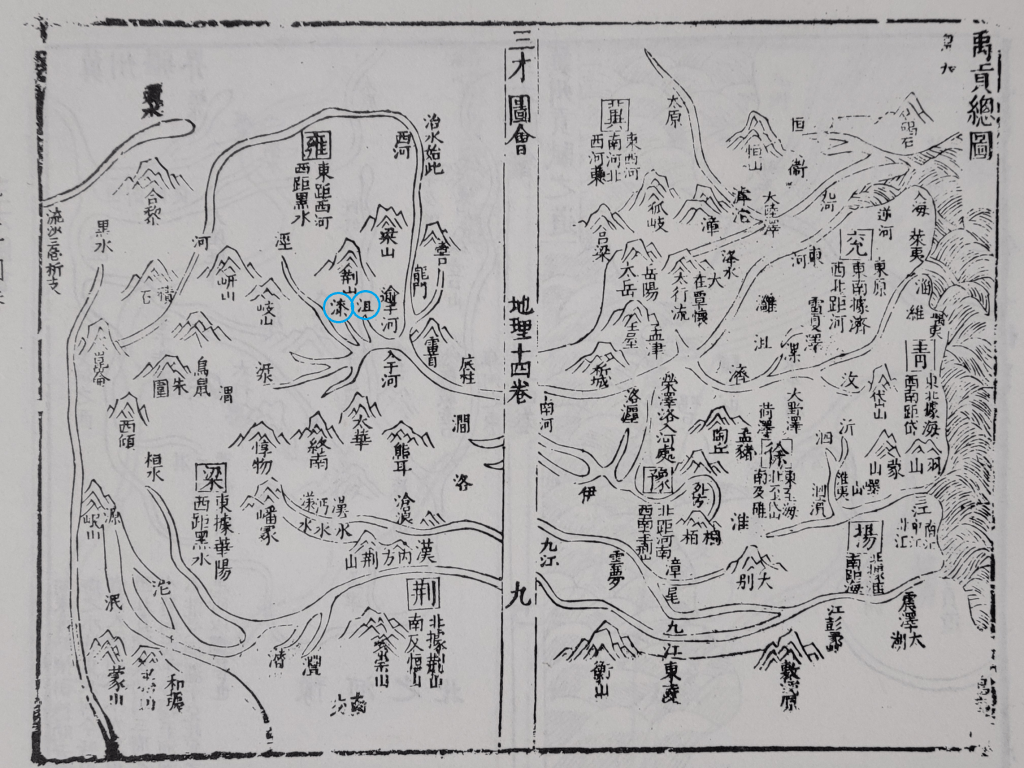 禹貢總圖
碣石
恒
衛
恒山
太原
冀
東西河
南河北
西河東
海
萊夷
濰
淄
九河
兗
東南據濟
西北距河
東原
東河
大陸澤
滹沱
狐岐
呂梁
太岳
岳陽
太行
大
在覃懷
王屋
孟津
析城
雷夏澤
灉
沮
濟
漯
汶
青
東北據海
西南距岱
岱山
大野澤
菏澤
孟豬
陶丘
滎澤
洛入河處
沂
泗
蒙山
羽山
徐
淮
豫
北距河南
西南至荊山
外方
桐柏
伊
南河
九江
雲夢
漳
尾
大別
揚
南距海
江
中江
北江
南江
震澤
大湖
彭蠡
江
九江
東陵
衡山
敷淺原
三才圖會
地理十四卷
九
治水始此
西河
雍
東距西河
西距黑水
合黎
黑水
河
涇
梁山
壺口
龍門
荊山
漆
沮
逾于河
岍山
岐山
積石
崑崙
鳥鼠
朱圉
渭
入于河
雷首
底柱
西傾
太華
終南
惇物
熊耳
澗
洛
桓水
梁
東據華陽
西距黑水
嶓冢
漾水
沔水
漢水
滄浪
漢
內方
荊山
岷山
源
沱
岷
荊
北據荊山
南及衡山
潛
澧
蒙山
蔡山
和夷